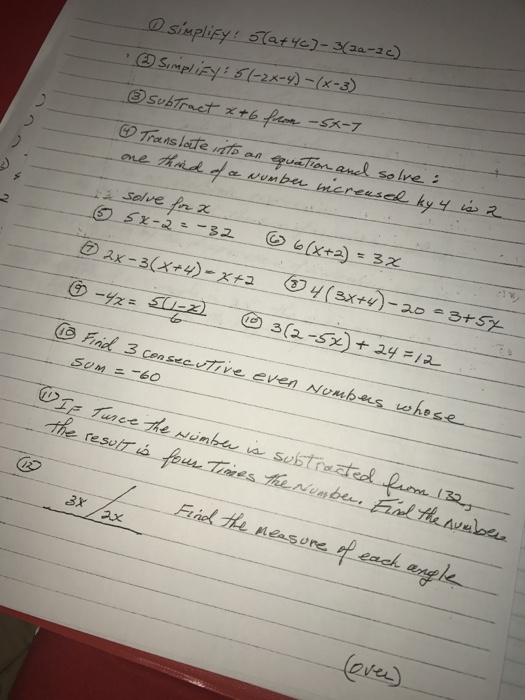 ① Simplify: 5(a+4c)-3(2a-2c)
② Simplify: 5(-2x-4)-(x-3)
③ Subtract x+6 from -5x-7
④ Translate into an equation and solve:
one third of a number increased by 4 is 2
Solve for x
⑤ 5x-2=-32 ⑥ 6(x+2)=3x
⑦ 2x-3(x+4)=x+2 ⑧ 4(3x+4)-20=3+5x
⑨ -4x= 5(1-x)/6 ⑩ 3(2-5x)+24=12
⑩ Find 3 consecutive even numbers whose
sum = -60
⑪ If Twice the number is subtracted from 132,
the result is four Times the number. Find the number
⑫ 3x / 2x Find the measure of each angle
(over)